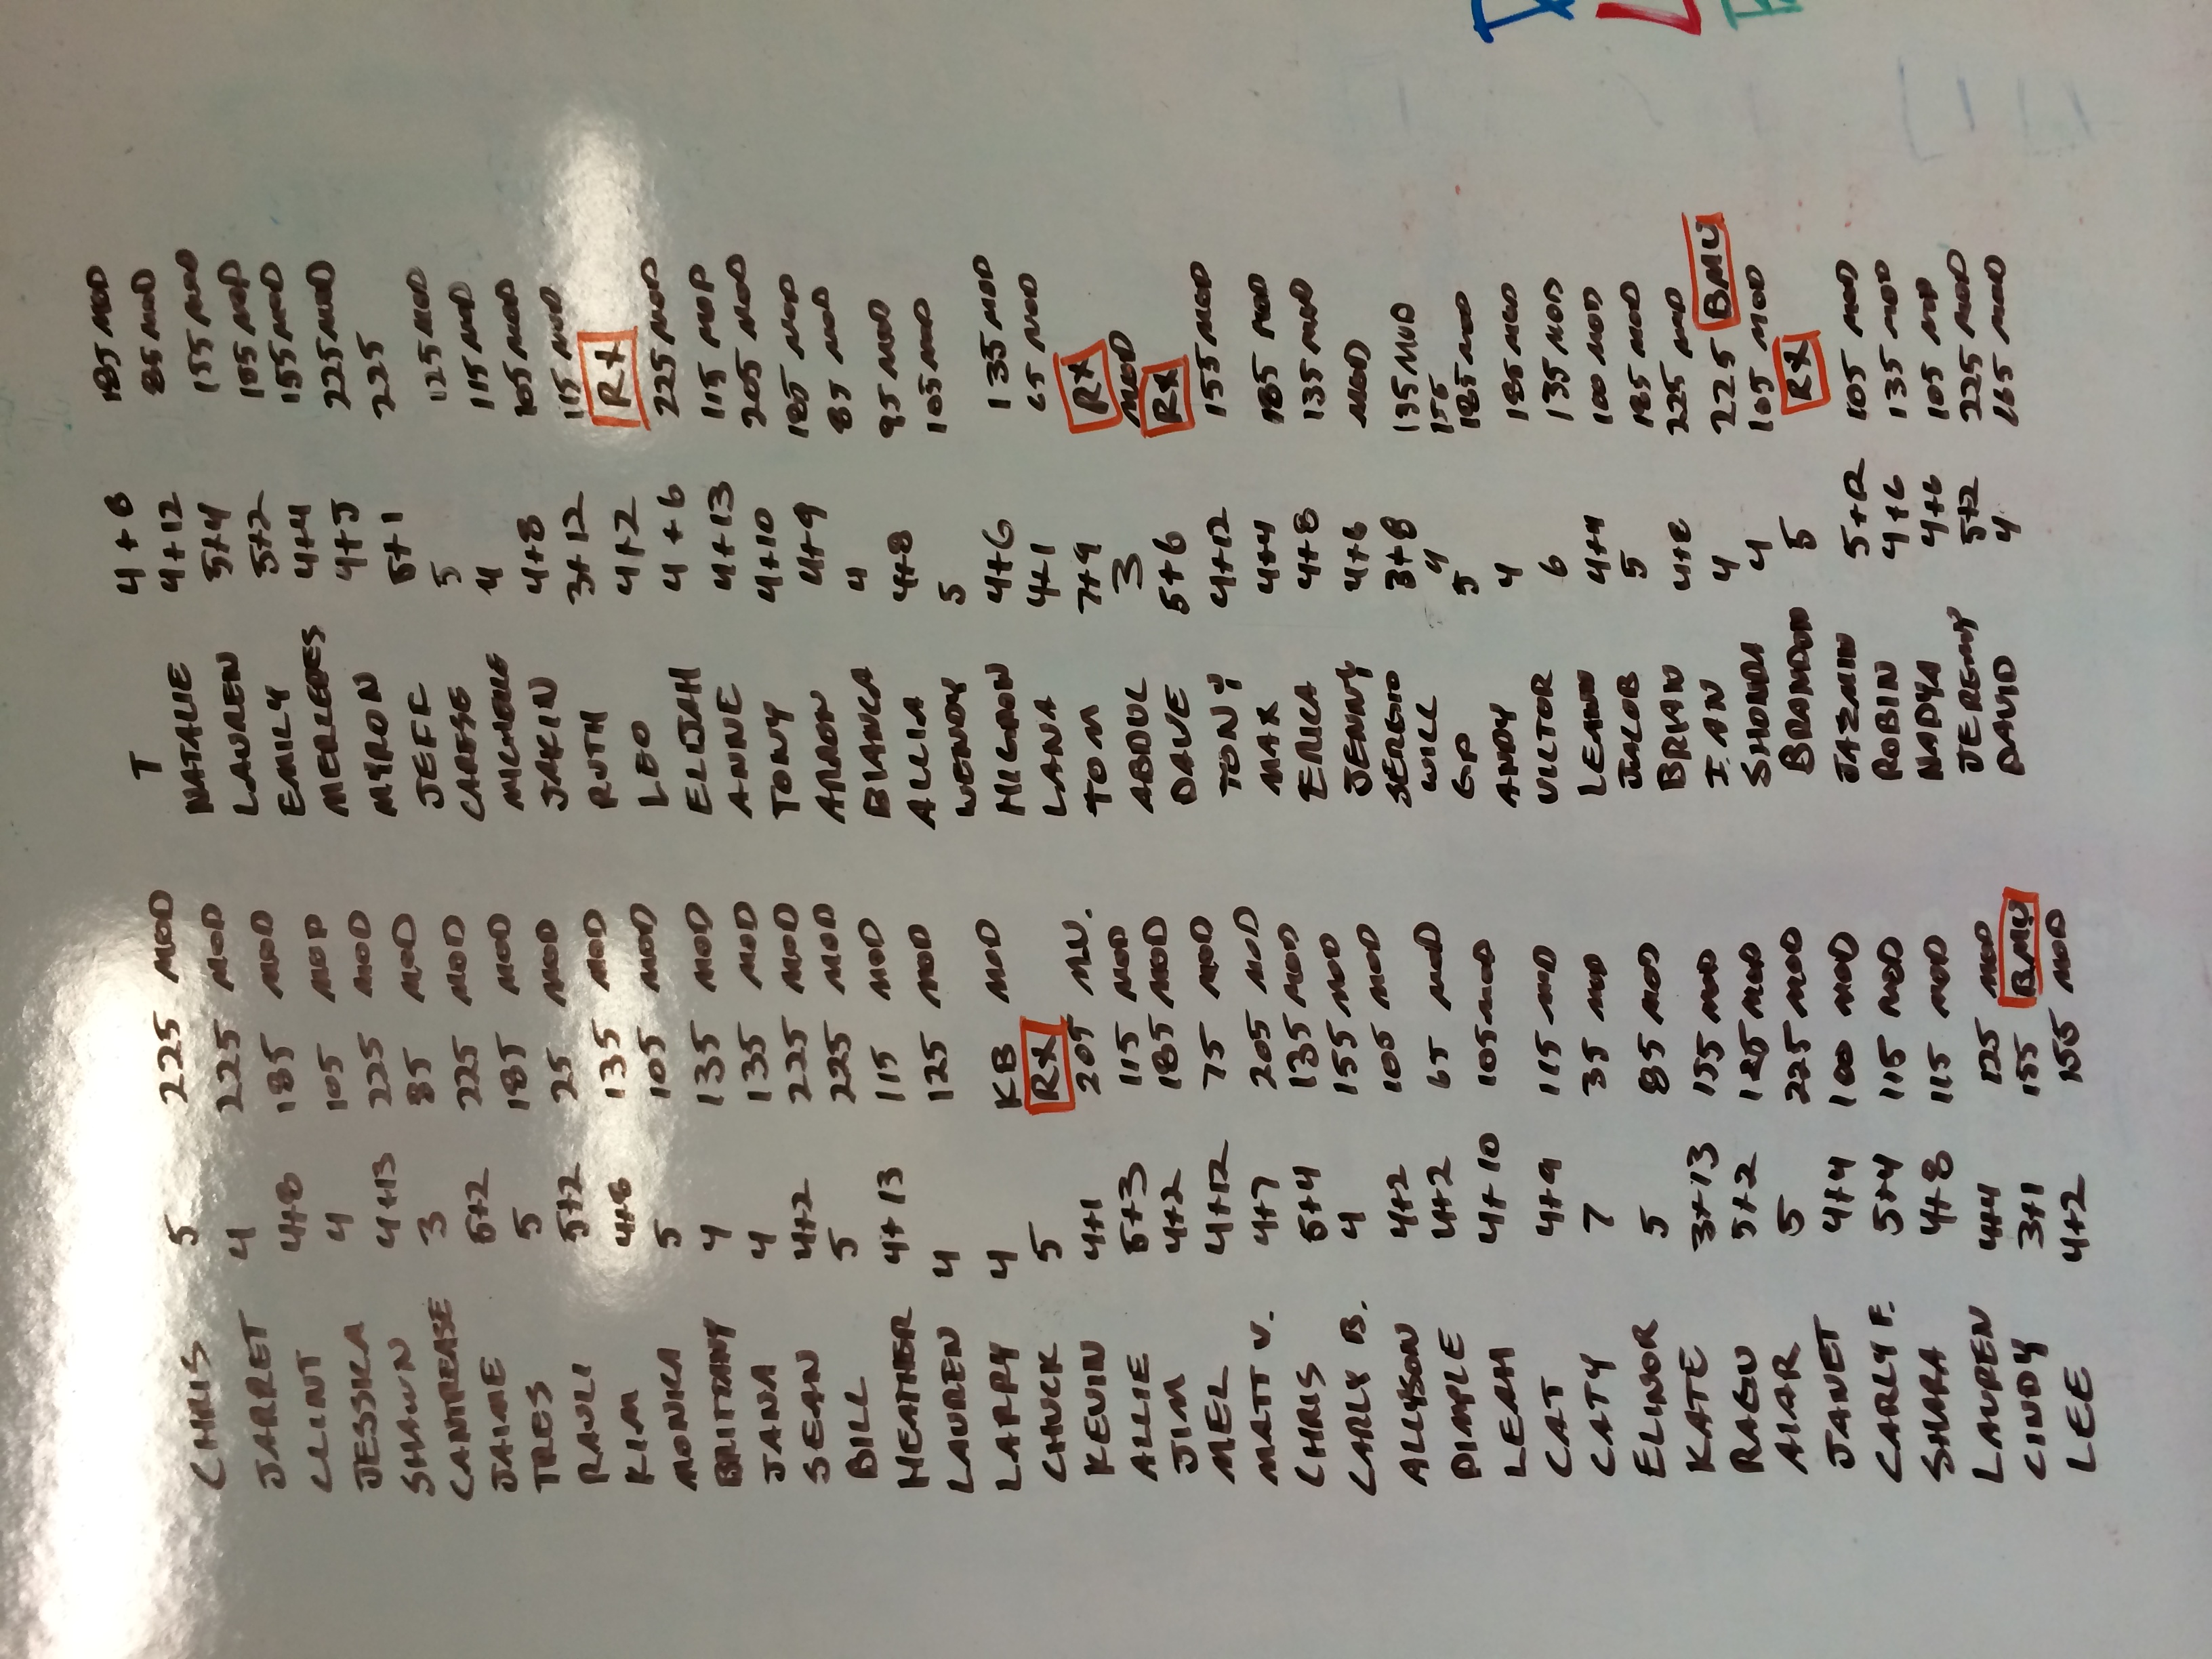 CHRIS 5 225 MOD
JARRET 4 225 MOD
CLINT 4+8 185 MOD
JESSICA 4 105 MOD
SHAWN 4+13 225 MOD
CANTREASE 3 85 MOD
JAIME 5+2 225 MOD
TRES 5 185 MOD
RAULI 5+2 25 MOD
KIM 4+8 135 MOD
MONICA 5 105 MOD
BRITTANY 4 135 MOD
JANA 4 135 MOD
SEAN 4+2 225 MOD
BILL 5 225 MOD
HEATHER 4+13 115 MOD
LAUREN 4 125 MOD
LARRY 4 KB MOD
CHUCK 5 RX
KEVIN 4+1 205 MU.
ALLIE 5+3 115 MOD
JIM 4+2 185 MOD
MEL 4+12 75 MOD
MATT V. 4+7 205 MOD
CHRIS 5+4 135 MOD
CARLY B. 4 155 MOD
ALLYSON 4+2 105 MOD
DIMPLE 4+2 65 MOD
LEAH 4+10 105 MOD
CAT 4+9 115 MOD
CATY 7 35 MOD
ELINOR 5 85 MOD
KATE 3+13 155 MOD
RAGU 5+2 125 MOD
AIAR 5 225 MOD
JANET 4+4 100 MOD
CARLY F. 5+4 115 MOD
SHARA 4+8 115 MOD
LAUREN 4+4 125 MOD
CINDY 3+1 155 BMU
LEE 4+2 155 MOD
T 4+8 185 MOD
NATALIE 4+12 85 MOD
LAUREN 5+4 155 MOD
EMILY 5+2 105 MOD
MERCEDES 4+4 155 MOD
MYRON 4+5 225 MOD
JEFF 5+1 225
CARESE 5 125 MOD
MICHELLE 4 115 MOD
JAKIN 4+8 105 MOD
RUTH 3+12 115 MOD
LEO 4+2 RX
ELIJAH 4+6 225 MOD
ANNE 4+13 115 MOD
TONY 4+10 205 MOD
ARRON 4+9 185 MOD
BIANCA 4 85 MOD
ALLIA 4+8 95 MOD
WENDY 5 105 MOD
4+6 135 MOD
LANA 4+1 65 MOD
TOM 7+9 RX
ABDUL 3 MOD
DAVE 5+6 RX
TONY 4+12 155 MOD
MAX 4+4 185 MOD
ERICA 4+8 135 MOD
JENNY 4+6 MOD
SERGIO 3+8 135 MOD
WILL 4 155
GP 5 185 MOD
ANDY 4 185 MOD
VICTOR 6 135 MOD
LEANN 4+4 100 MOD
JACOB 5 185 MOD
BRIAN 4+8 225 MOD
I.AN 4 225 BMU
SHONDA 4 165 MOD
BRANDON 5 RX
JAZMIN 5+12 105 MOD
ROBIN 4+6 135 MOD
NADYA 4+6 105 MOD
JEREMY 5+2 225 MOD
DAVID 4 165 MOD